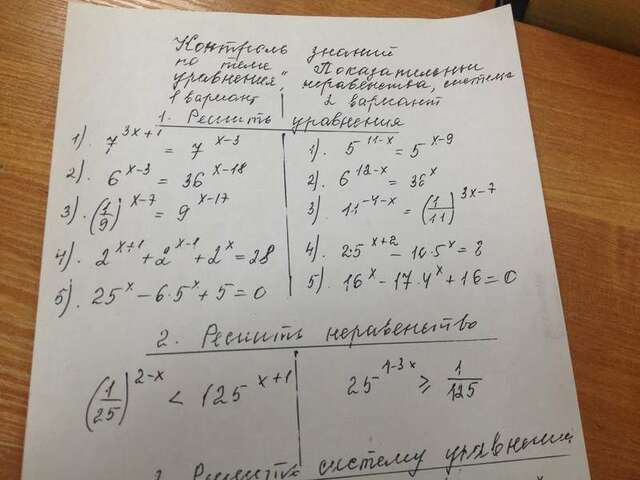 Контроль знаний
по теме "Показательные
уравнения, неравенства, системы
1 вариант 2 вариант
1. Решить уравнения
1). 7^{3x+1} = 7^{x-3} 1). 5^{11-x} = 5^{x-9}
2). 6^{x-3} = 36^{x-18} 2). 6^{12-x} = 36^x
3). (1/9)^{x-7} = 9^{x-17} 3). 11^{-4-x} = (1/11)^{3x-7}
4). 2^{x+1} + 2^{x-1} + 2^x = 28 4). 25^{x+2} - 10·5^x =
5). 25^x - 6·5^x + 5 = 0 5). 16^x - 17·4^x + 16 = 0
2. Решить неравенство
(1/25)^{2-x} < 125^{x+1} 25^{1-3x} ≥ 1/125
Решить систему уравнений